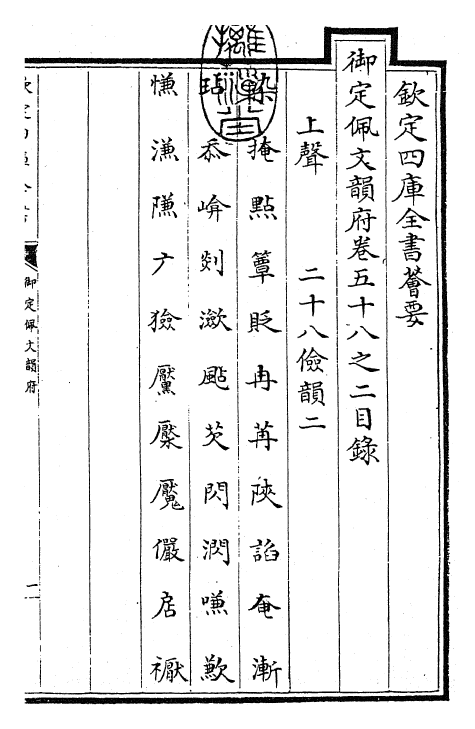 欽定四庫全書薈要
御定佩文韻府卷五十八之二目錄
上聲 二十八儉韻二
染掩點簟貶冉苒陝諂奄漸
玷忝崦剡瀲颭芡閃嗛歉
慊溓隒广獫黶檿魘儼扂
御定佩文韻府
一